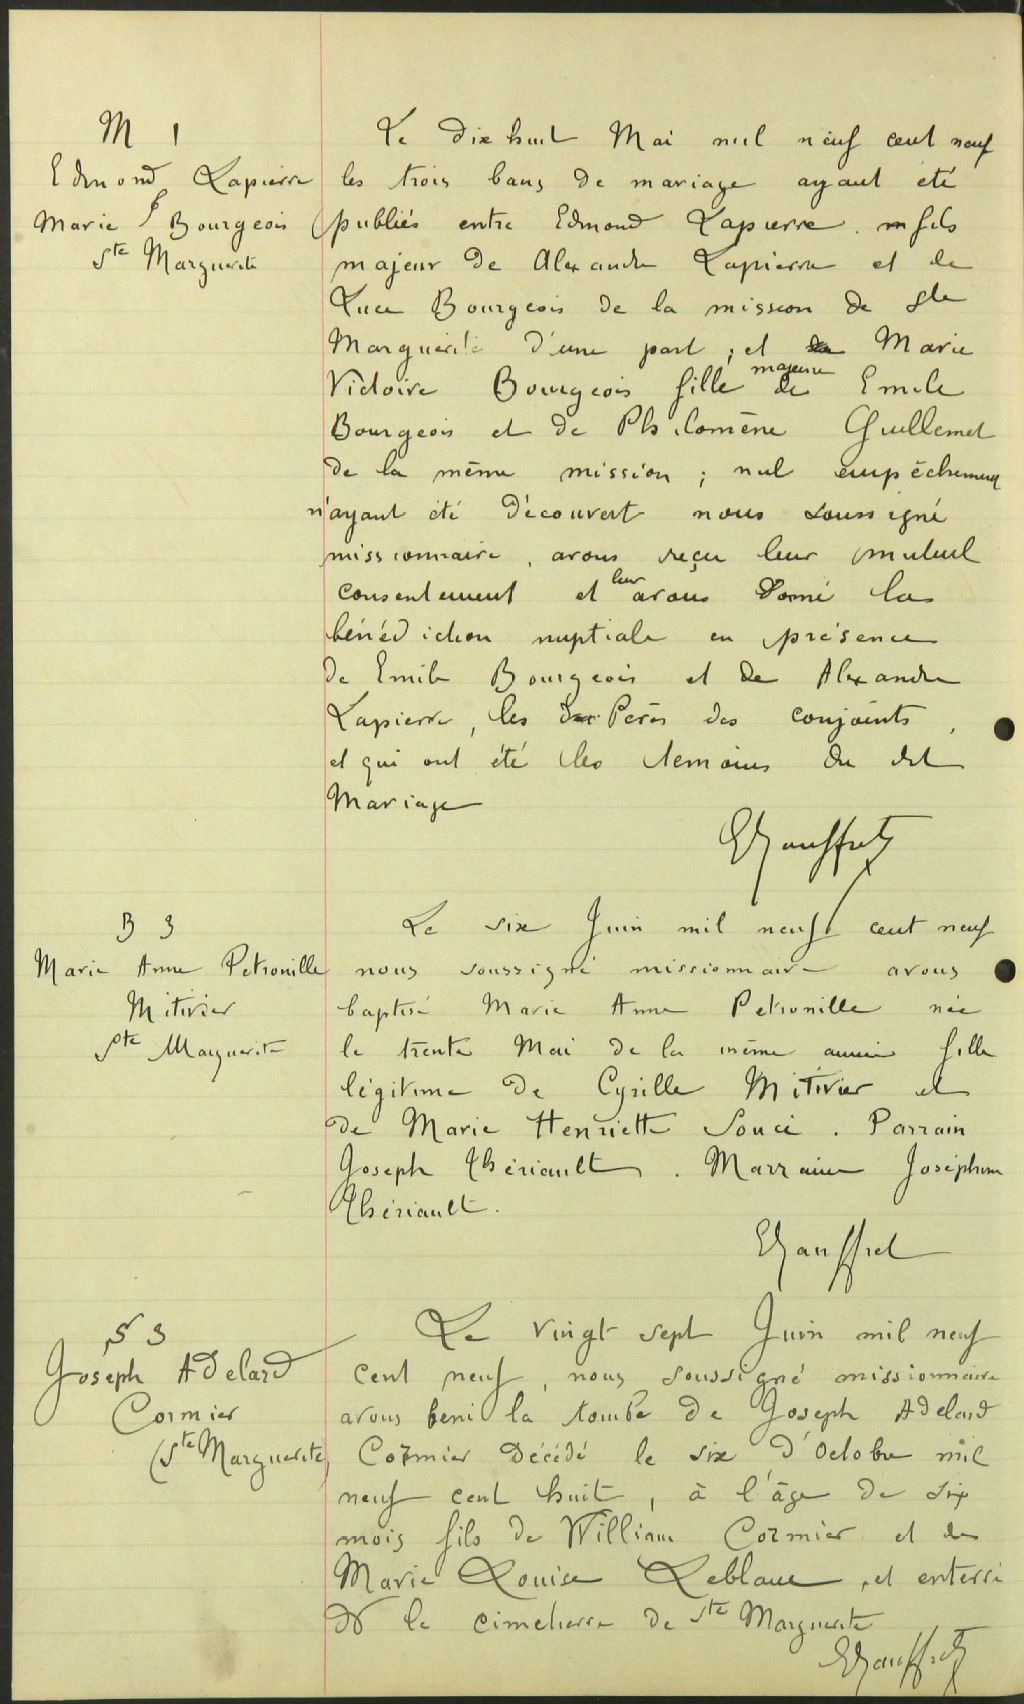 M 1
Edmond Lapierre
&
Marie Bourgeois
Ste Marguerite
Le dix huit Mai mil neuf cent neuf
les trois bans de mariage ayant été
publiés entre Edmond Lapierre. fils
majeur de Alexandre Lapierre et de
Luce Bourgeois de la mission de Ste
Marguerite d'une part ; et Marie
Victoire Bourgeois fille majeure de Emile
Bourgeois et de Philomène Guillemet
de la même mission ; nul empêchement
n'ayant été découvert nous soussigné
missionnaire, avons reçu leur mutuel
consentement et leur avons donné la
bénédiction nuptiale en présence
de Emile Bourgeois et de Alexandre
Lapierre, les Pères des conjoints,
et qui ont été les témoins du dit
Mariage
B 3
Marie Anne Petronille
Mitivier
Ste Marguerite
Le six Juin mil neuf cent neuf
nous soussigné missionnaire avons
baptisé Marie Anne Petronille née
le trente Mai de la même année fille
légitime de Cyrille Mitivier et
de Marie Henriette Souci. Parrain
Joseph Thériault. Marraine Joséphine
Thériault.
S 3
Joseph Adelard
Cormier
(Ste Marguerite)
Le vingt sept Juin mil neuf
cent neuf, nous soussigné missionnaire
avons beni la tombe de Joseph Adelard
Cormier décédé le six d'Octobre mil
neuf cent huit, à l'âge de six
mois fils de William Cormier et de
Marie Louise Leblanc, et enterré
ds le cimetierre de Ste Marguerite